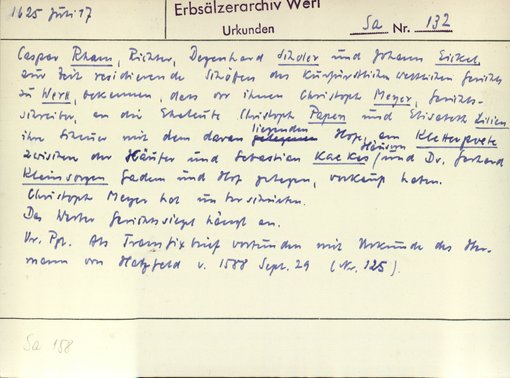 1625 Juli 17
Erbsälzerarchiv Werl
Urkunden Sa Nr. 132
Caspar Rham, Richter, Degenhard Scholer und Johann Sickel
zur Zeit residierende Schöffen des Kurfürstlichen westlichen Gerichts
zu Werl, bekennen, dass vor ihnen Christoph Meyer, Gerichts-
schreiber, an die Eheleute Christoph Papen und Elisabeth Lilien
ihre Scheuer mit dem daran gelegenen liegenden Hof, am Kletterpoete
zwischen der Häuser und Sebastian Kaeken Häusern / und Dr. Gerhard
Kleinsorgen Gadem und Hof gelegen, verkauft haben.
Christoph Meyer hat unterschrieben.
Das Werler Gerichtssiegel hängt an.
Or. Pgt. Als Transfixbrief verbunden mit Urkunde des Her-
mann von Hatzfeld v. 1588 Sept. 29 (Nr. 125).
Sa 158